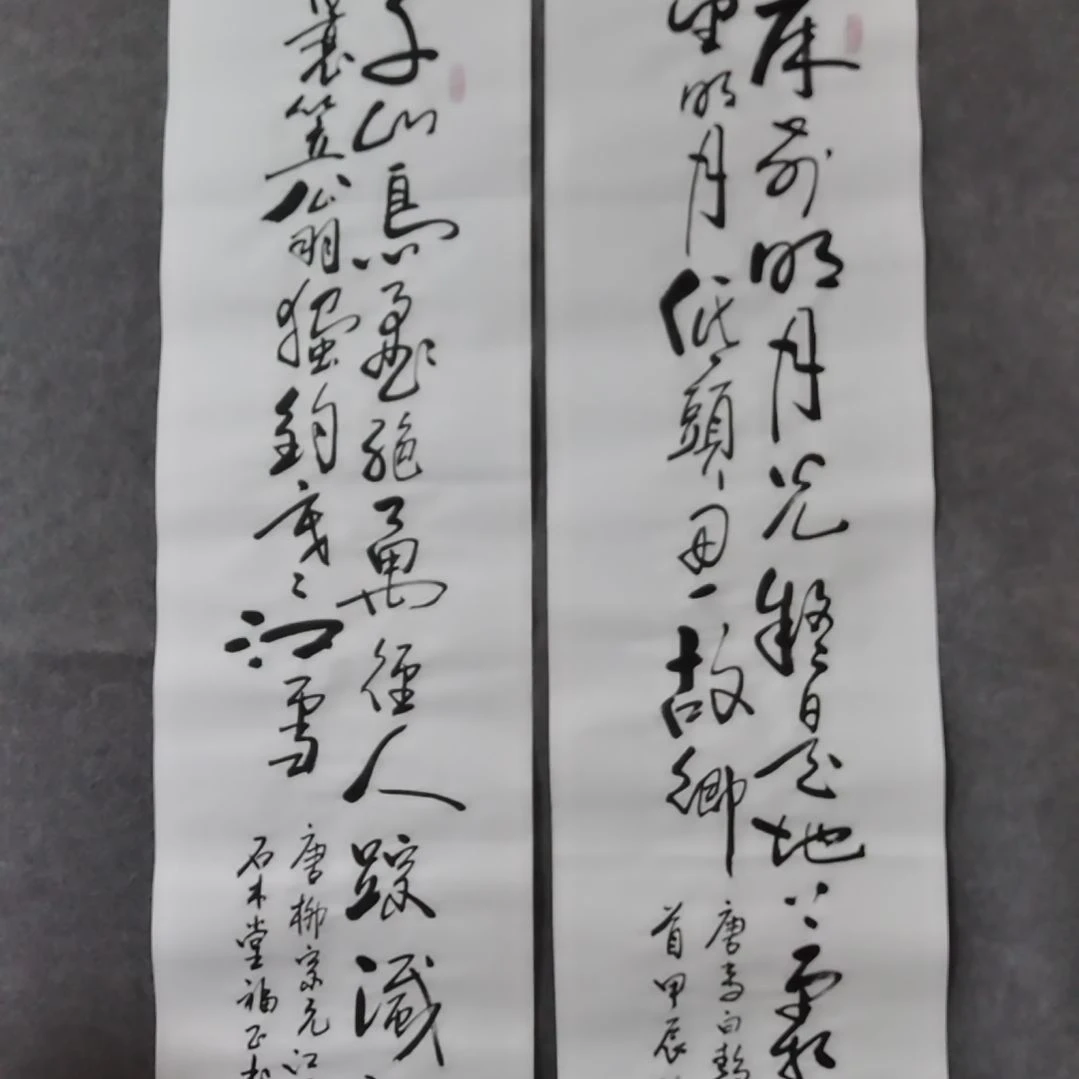 床前明月光疑是地上霜
望明月低頭思故鄉
唐李白靜
首甲辰
千山鳥飛絕萬徑人踪滅
蓑笠翁獨釣寒江雪
唐柳宗元江
石木堂福正